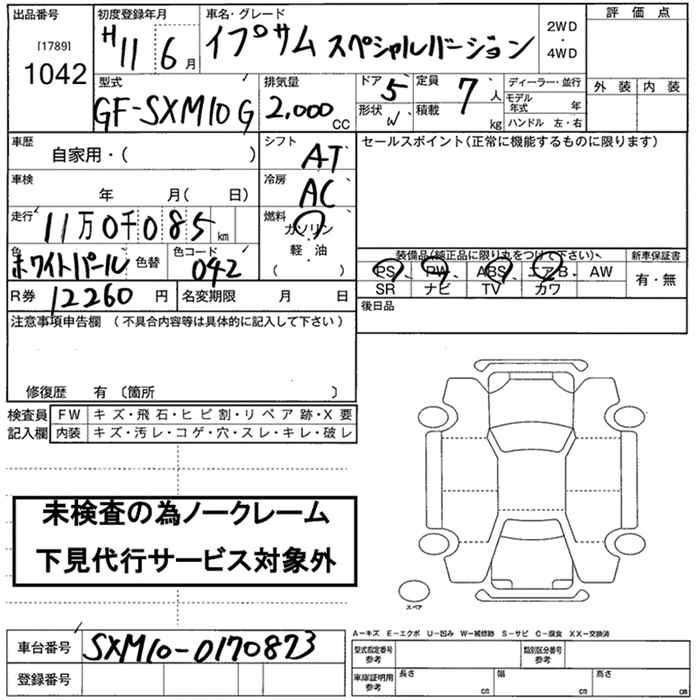 出品番号
[1789]
1042
初度登録年月
H11 6月
車名・グレード
イプサム スペシャルバージョン
2WD
・
4WD
評価点
外装 内装
型式
GF-SXM10G
排気量
2,000 CC
ドア 5
形状 W
定員 7 人
積載 kg
ディーラー・並行
モデル年式 年
ハンドル 左・右
車歴
自家用・( )
シフト
AT
セールスポイント(正常に機能するものに限ります)
車検
年 月( 日)
冷房
AC
走行
11万0千085 km
燃料
ガソリン
軽油
( )
色
ホワイトパール 色替
色コード
042
装備品(純正品に限り丸をつけて下さい)
新車保証書
PS PW ABS エアB AW
有・無
SR ナビ TV カワ
R券 12260 円
名変期限 月 日
後日品
注意事項申告欄 (不具合内容等は具体的に記入して下さい)
修復歴 有 〔箇所 〕
検査員
記入欄
FW キズ・飛石・ヒビ割・リペア跡・X要
内装 キズ・汚レ・コゲ・穴・スレ・キレ・破レ
未検査の為ノークレーム
下見代行サービス対象外
スペア
A-キズ E-エクボ U-凹み W-補修跡 S-サビ C-腐食 XX-交換済
車台番号 SXM10-0170873
登録番号
型式指定番号
参考
類別区分番号
参考
車庫証明用
参考
長さ cm
幅 cm
高さ cm